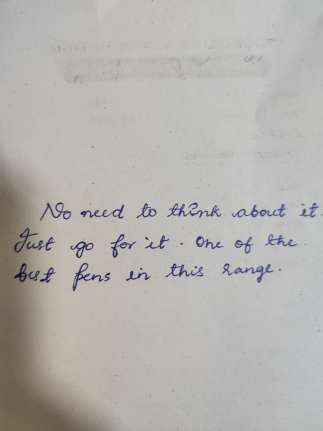 No need to think about it.
Just go for it. One of the
best pens in this range.